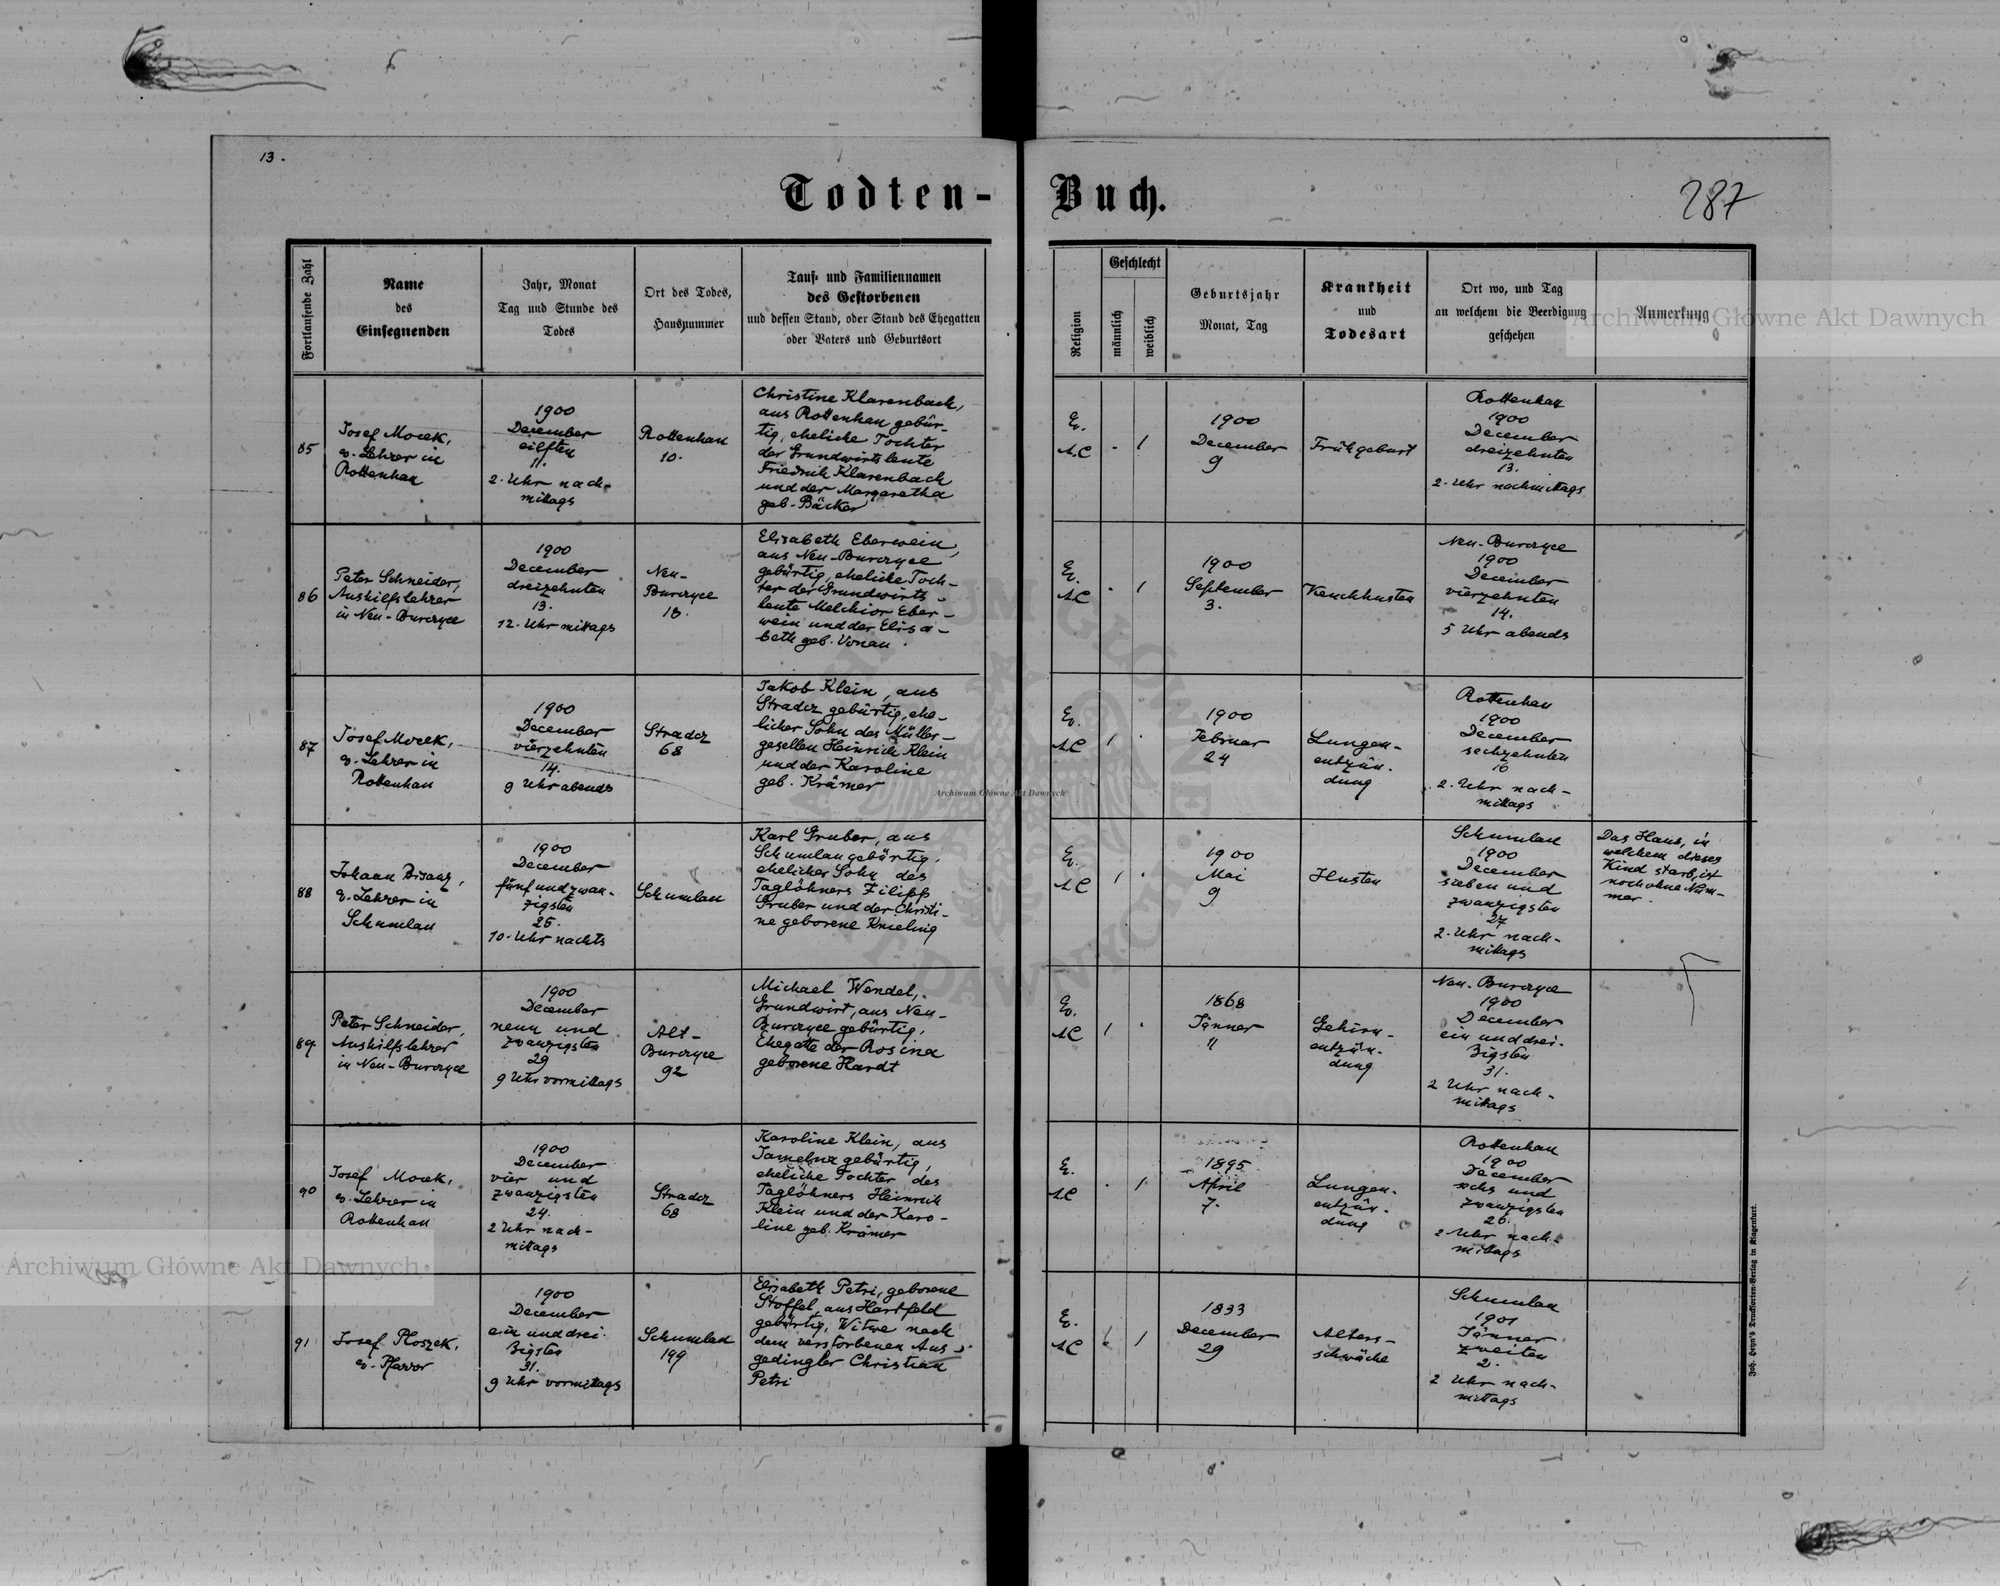 13.
Todten-Buch.
287
Fortlaufende Zahl
Name
des
Einsegnenden
Jahr, Monat
Tag und Stunde des
Todes
Ort des Todes,
Hausnummer
Tauf- und Familiennamen
des Gestorbenen
und dessen Stand, oder Stand des Ehegatten
oder Vaters und Geburtsort
Religion
Geschlecht
männlich
weiblich
Geburtsjahr
Monat, Tag
Krankheit
und
Todesart
Ort wo, und Tag
an welchem die Beerdigung
geschehen
Anmerkung
Archiwum Główne Akt Dawnych
85
Josef Mocek,
ev. Lehrer in
Rottenhan
1900
December
eilften
11.
2. Uhr nach-
mittags
Rottenhan
10.
Christine Klarenbach,
aus Rottenhan gebür-
tig, eheliche Tochter
der Grundwirtsleute
Friedrich Klarenbach
und der Margaretha
geb. Bäcker
Ev.
AC
- 1
1900
December
9
Frühgeburt
Rottenhan
1900
December
dreizehnten
13.
2. Uhr nachmittags
86
Peter Schneider,
Aushilfslehrer
in Neu-Burczyce
1900
December
dreizehnten
13.
12. Uhr mittags
Neu-
Burczyce
18.
Elisabeth Eberwein,
aus Neu-Burczyce
gebürtig, eheliche Toch-
ter der Grundwirts-
leute Melchior Eber-
wein und der Elisa-
beth geb. Vonau.
Ev.
AC
- 1
1900
September
3.
Keuchhusten
Neu-Burczyce
1900
December
vierzehnten
14.
5 Uhr abends
87
Josef Mocek,
ev. Lehrer in
Rottenhan
1900
December
vierzehnten
14.
9 Uhr abends
Stradcz
68
Jakob Klein, aus
Stradcz gebürtig, ehe-
licher Sohn des Müller-
gesellen Heinrich Klein
und der Karoline
geb. Krämer
Ev.
AC
1 .
1900
Februar
24
Lungen-
entzün-
dung
Rottenhan
1900
December
sechzehnten
16
2. Uhr nach-
mittags
88
Johann Bisanz,
ev. Lehrer in
Schumlau
1900
December
fünf und zwan-
zigsten
25.
10. Uhr nachts
Schumlau
Karl Gruber, aus
Schumlau gebürtig,
ehelicher Sohn des
Taglöhners Filipp
Gruber und der Christi-
ne geborene Knieling
Ev.
AC
1 .
1900
Mai
9
Husten
Schumlau
1900
December
sieben und
zwanzigsten
27
2. Uhr nach-
mittags
Das Haus, in
welchem dieses
Kind starb, ist
noch ohne Num-
mer.
89
Peter Schneider,
Aushilfslehrer
in Neu-Burczyce
1900
December
neun und
zwanzigsten
29
9 Uhr vormittags
Alt-
Burczyce
92
Michael Wendel,
Grundwirt, aus Neu-
Burczyce gebürtig,
Ehegatte der Rosina
geborene Hardt
Ev.
AC
1 .
1868
Jänner
11
Gehirn-
entzün-
dung
Neu-Burczyce
1900
December
ein und drei-
zigsten
31.
2 Uhr nach-
mittags
90
Josef Mocek,
ev. Lehrer in
Rottenhan
1900
December
vier und
zwanzigsten
24.
2 Uhr nach-
mittags
Stradcz
68
Karoline Klein, aus
gebürtig,
eheliche Tochter des
Taglöhners Heinrich
Klein und der Karo-
line geb. Krämer
Ev.
AC
. 1
1895
April
7.
Lungen-
entzün-
dung
Rottenhan
1900
December
sechs und
zwanzigsten
26.
2 Uhr nach-
mittags
91
Josef Ploszek,
ev. Pfarrer
1900
December
ein und drei-
zigsten
31.
9 Uhr vormittags
Schumlau
199
Elisabeth Petri, geborene
Stoffel, aus Hartfeld
gebürtig, Witwe nach
dem verstorbenen Aus-
gedingler Christian
Petri
Ev.
AC
1
1833
December
29
Alters-
schwäche
Schumlau
1901
Jänner
zweiten
2.
2 Uhr nach-
mittags
Joh. Heyn's Drucksorten-Verlag in Klagenfurt.
Archiwum Główne Akt Dawnych
Archiwum Główne Akt Dawnych